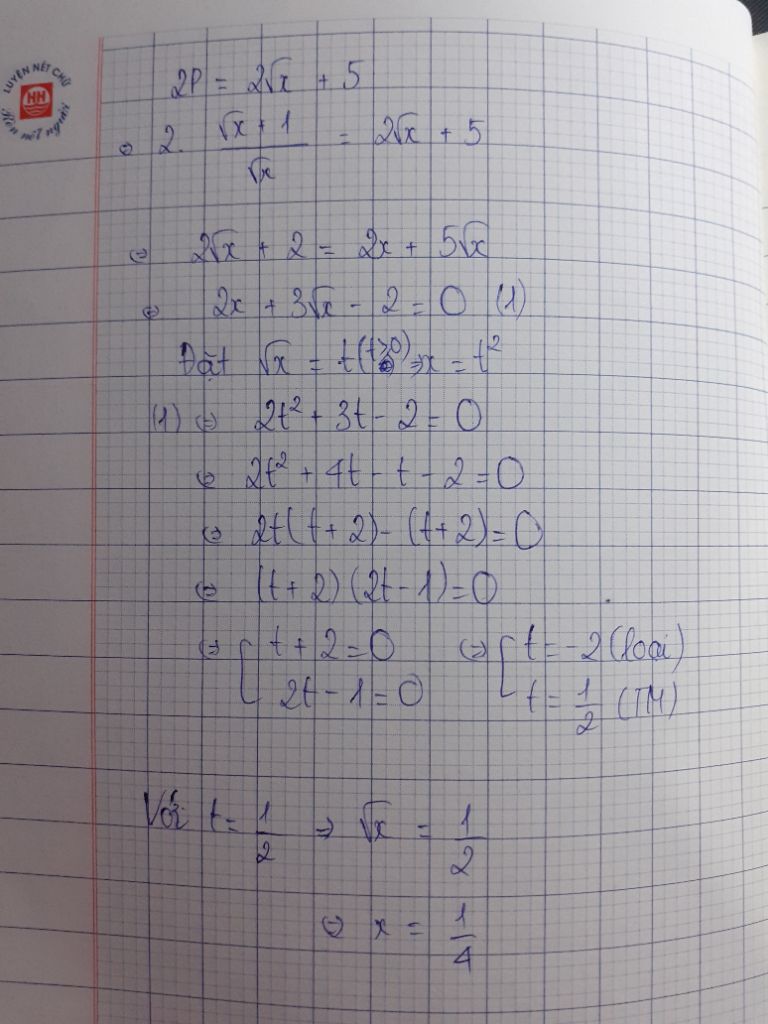 LUYỆN NÉT CHỮ
HH
Rèn nết người
2P = 2√x + 5
⇔ 2. (√x + 1)/√x = 2√x + 5
⇔ 2√x + 2 = 2x + 5√x
⇔ 2x + 3√x - 2 = 0 (1)
Đặt √x = t (t>0) ⇒ x = t²
(1) ⇔ 2t² + 3t - 2 = 0
⇔ 2t² + 4t - t - 2 = 0
⇔ 2t(t + 2) - (t + 2) = 0
⇔ (t + 2)(2t - 1) = 0
⇔ [ t + 2 = 0 ⇔ [ t = -2 (loại)
2t - 1 = 0 t = 1/2 (TM)
Với t = 1/2 ⇒ √x = 1/2
⇔ x = 1/4